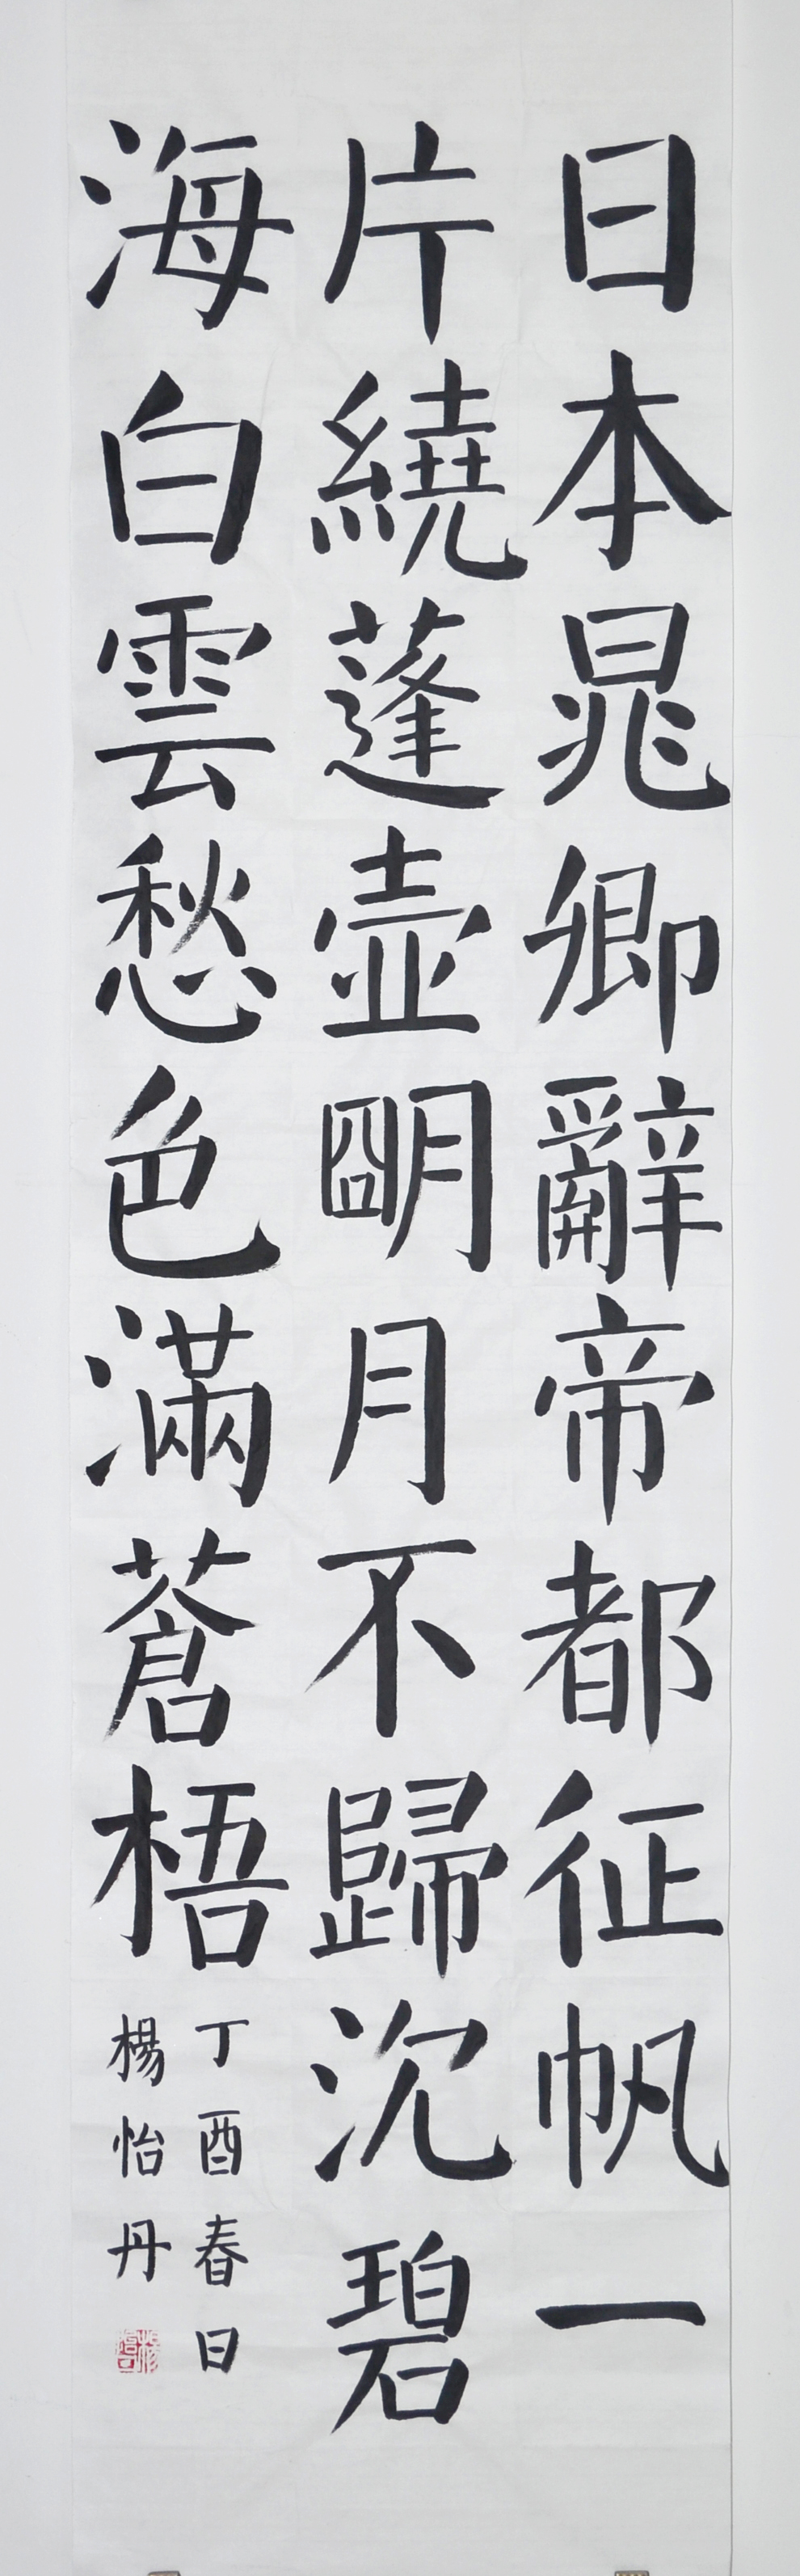 日本晁卿辭帝都征帆一
片繞蓬壺朙月不歸沈碧
海白雲愁色滿蒼梧
丁酉春日
楊怡丹